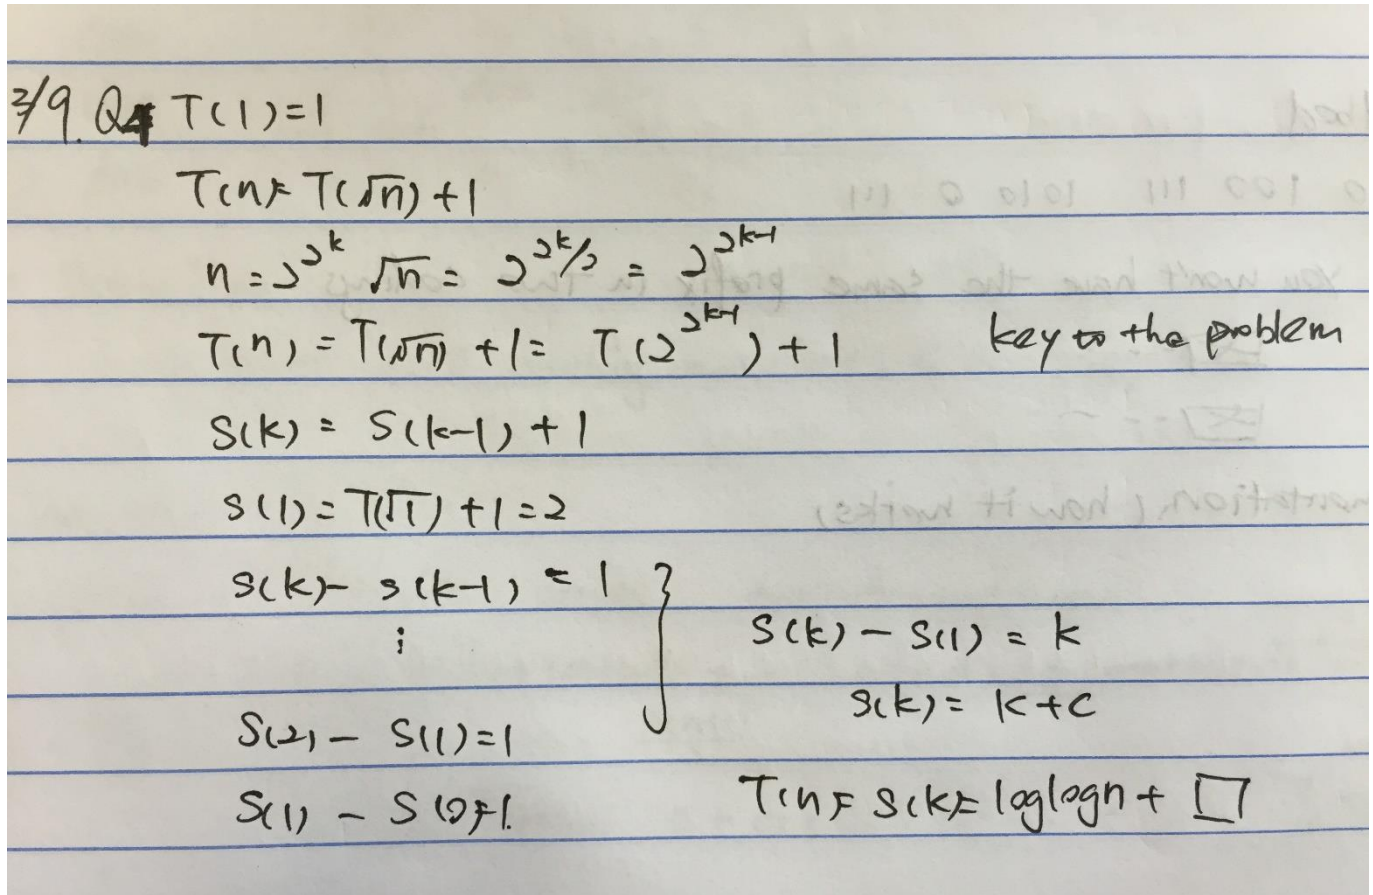 3/9. Q4 T(1)=1
T(n)= T(√n)+1
n=2^2^k √n = 2^2^k/2 = 2^2^k-1
T(n) = T(√n) +1= T(2^2^k-1) + 1 key to the problem
S(k) = S(k-1) + 1
S(1) = T(√1) + 1 = 2
S(k)- S(k-1) = 1
⋮ S(k) - S(1) = k
S(k) = k+c
S(2) - S(1)=1
S(1) - S(0)=1. T(n)= S(k)= loglogn + □